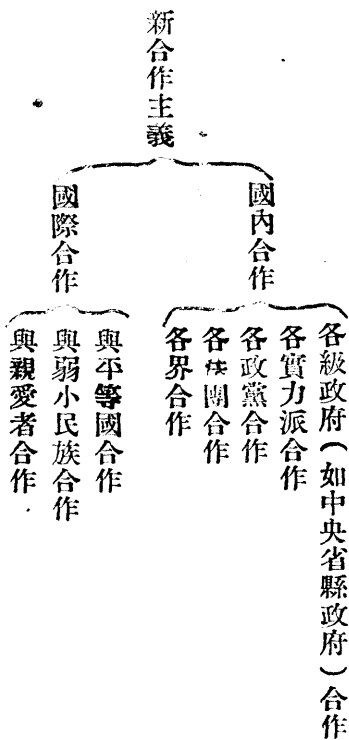 新合作主義
國內合作
各級政府(如中央省縣政府)合作
各實力派合作
各政黨合作
各族團合作
各界合作
國際合作
與平等國合作
與弱小民族合作
與親愛者合作